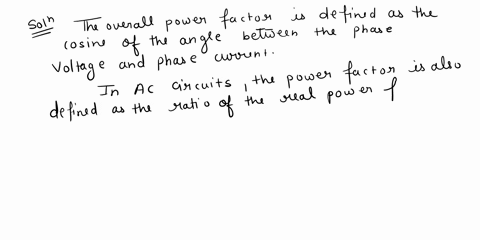 Solⁿ The overall power factor is defined as the
cosine of the angle between the phase
voltage and phase current.
In AC circuits, the power factor is also
defined as the ratio of the real power f